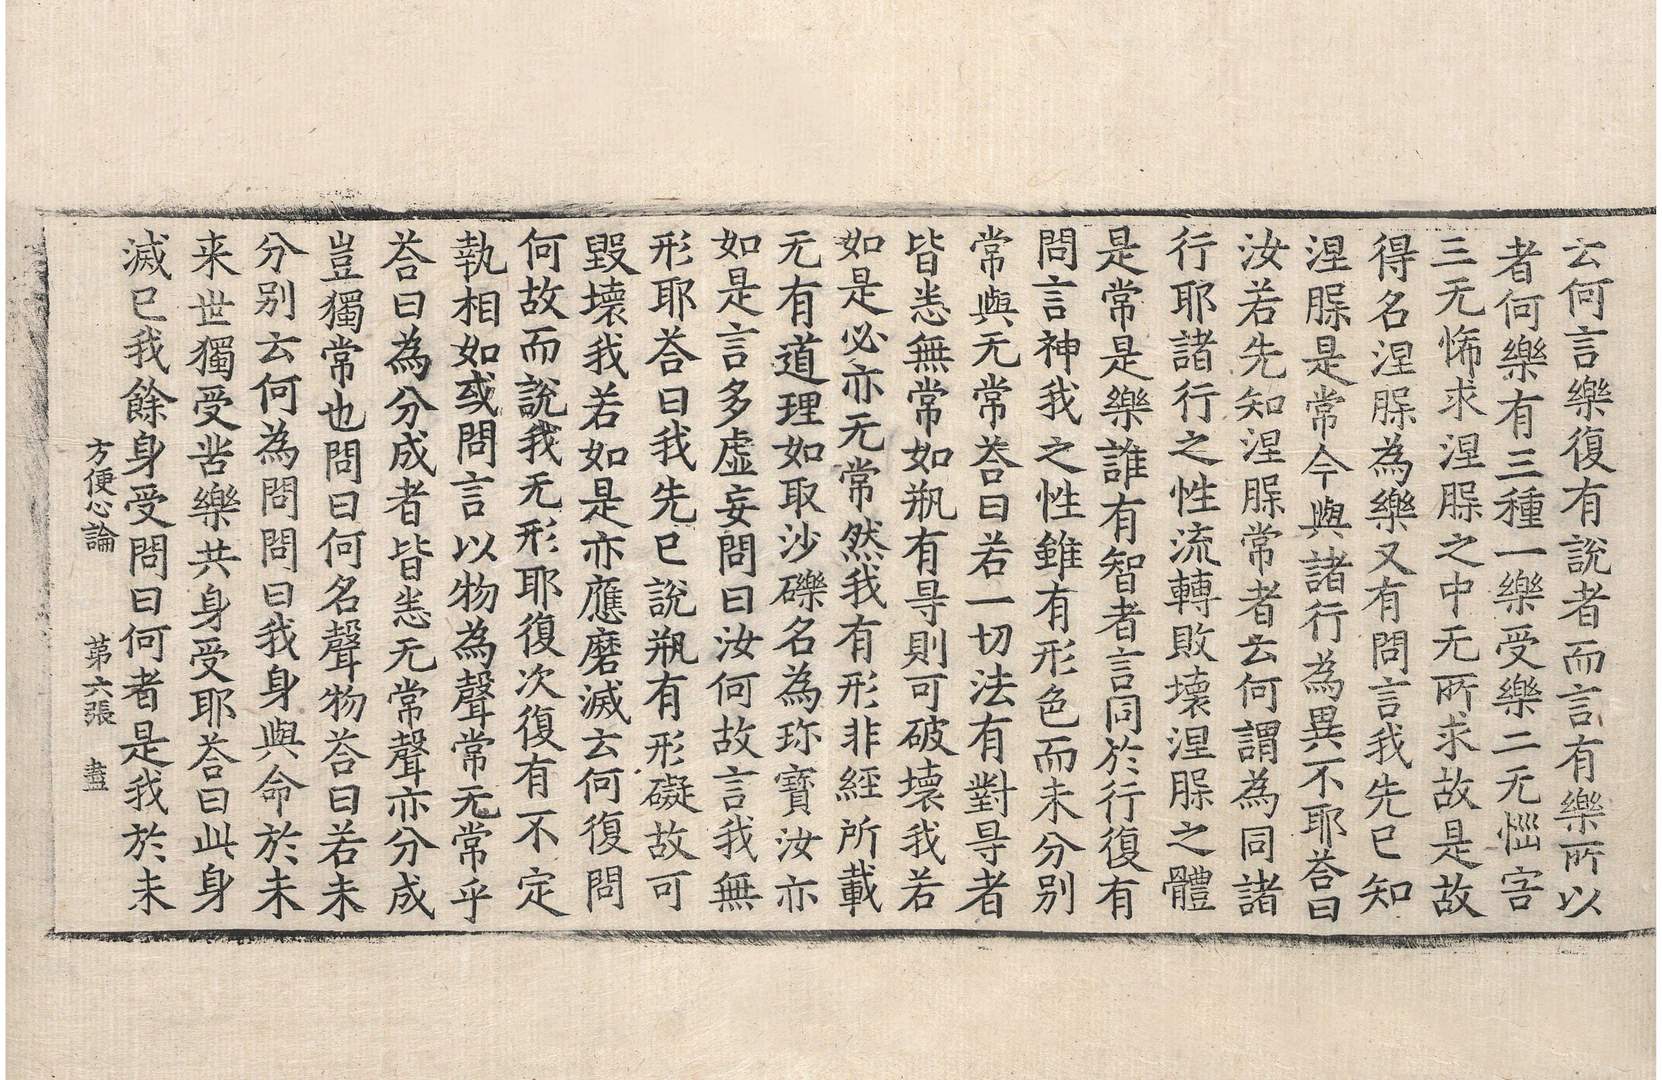 云何言樂復有說者而言有樂所以
者何樂有三種一樂受樂二无惱害
三无悕求涅槃之中无所求故是故
得名涅槃為樂又有問言我先已知
涅槃是常今與諸行為異不耶荅曰
汝若先知涅槃常者云何謂為同諸
行耶諸行之性流轉敗壞涅槃之體
是常是樂誰有智者言同於行復有
問言神我之性雖有形色而未分別
常與无常荅曰若一切法有對㝵者
皆悉無常如瓶有㝵則可破壞我若
如是必亦无常然我有形非經所載
无有道理如取沙礫名為珎寶汝亦
如是言多虛妄問曰汝何故言我無
形耶荅曰我先已說瓶有形礙故可
毀壞我若如是亦應磨滅云何復問
何故而說我无形耶復次復有不定
執相如或問言以物為聲常无常乎
荅曰為分成者皆悉无常聲亦分成
豈獨常也問曰何名聲物荅曰若未
分別云何為問問曰我身與命於未
来世獨受苦樂共身受耶荅曰此身
滅已我餘身受問曰何者是我於未
方便心論 第六張 盡